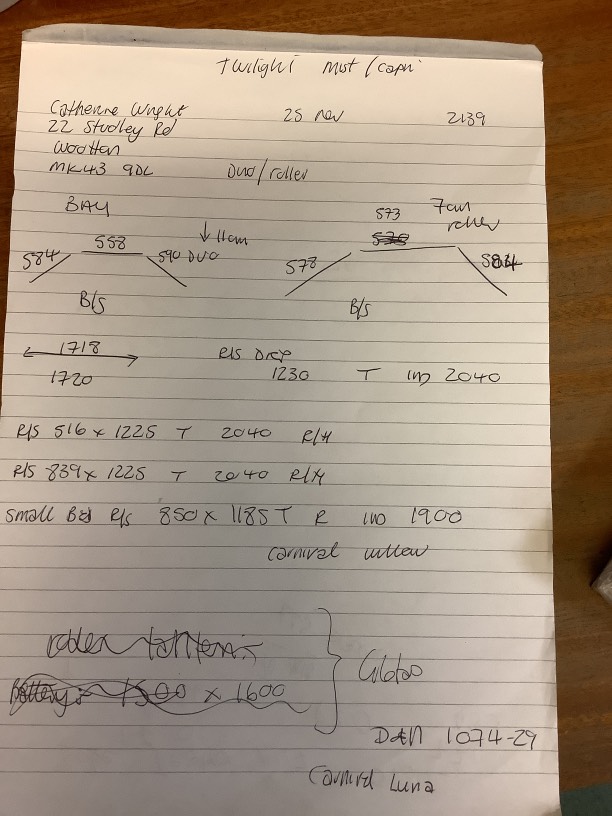 Twilight Mist / Capri
Catherine Wright 25 Nov 2139
22 Studley Rd
Wootton
MK43 9DL Duo/roller
BAY
573 7cm roller
584 558 590 DUO ↓ 11cm
578 584
B/S B/S
1718
1720
R/S DROP
1230 T IND 2040
R/S 516 x 1225 T 2040 R/H
R/S 839 x 1225 T 2040 R/H
Small Bed R/S 850 x 1185 T R IND 1900
Carnival willow
x 1600
1074-29
Carnival Luna